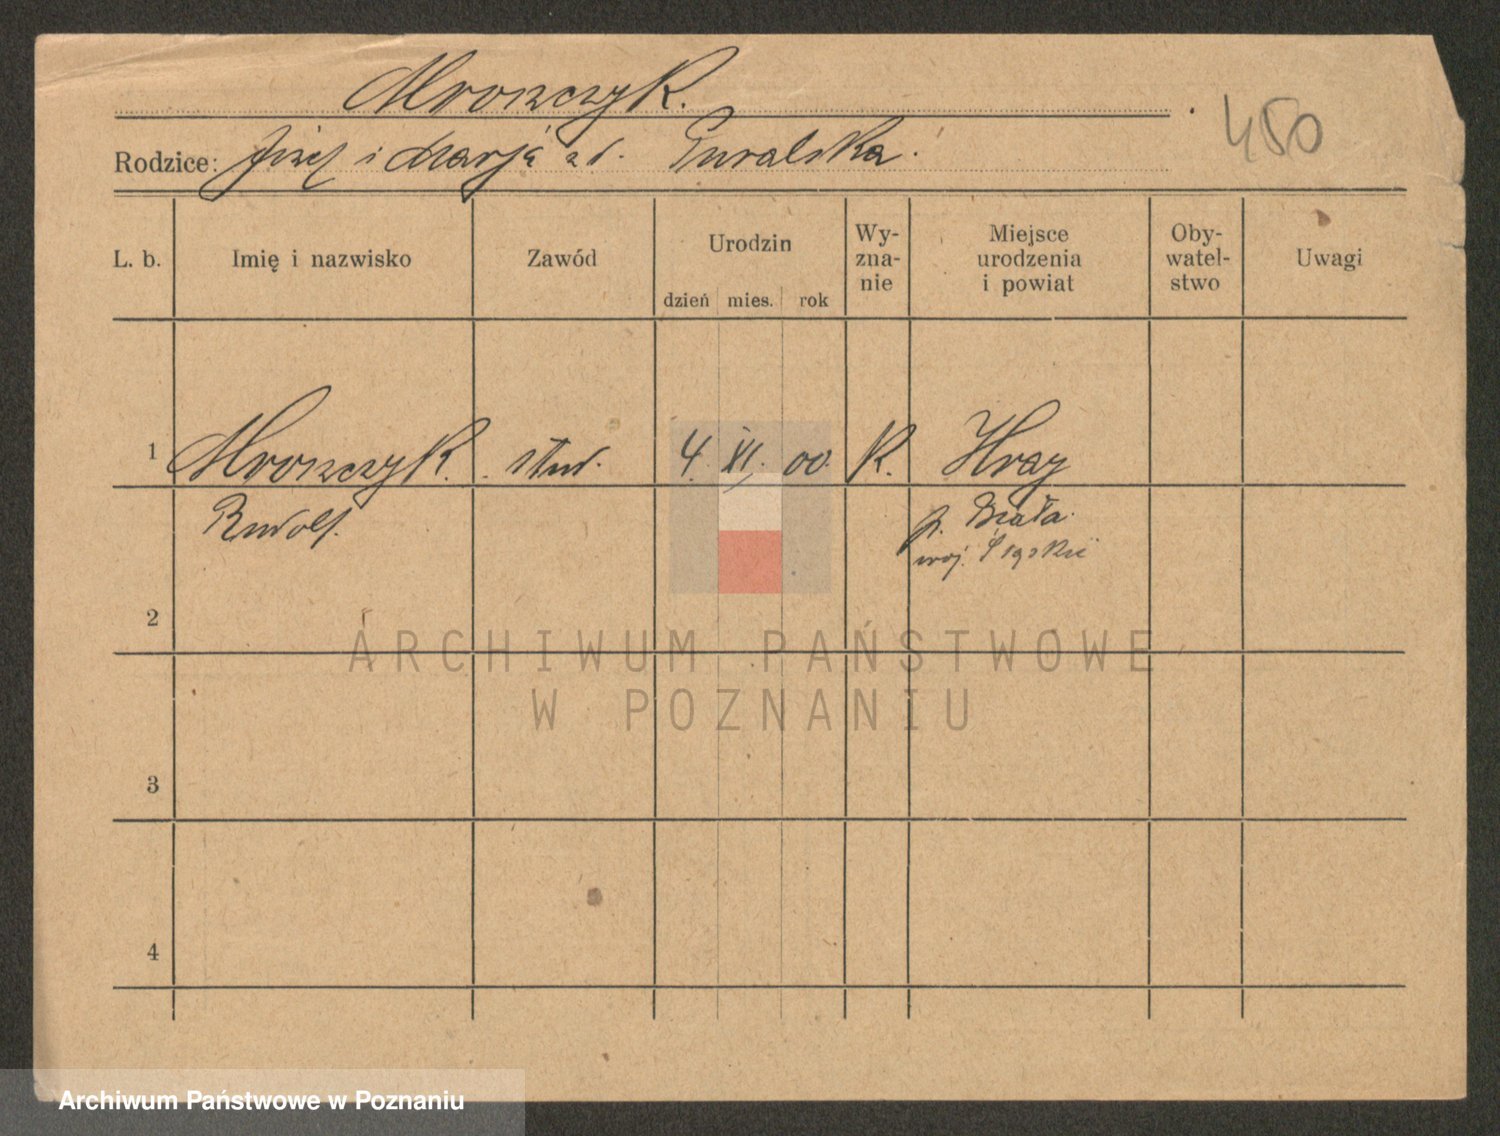 Mroszczyk.
450
Rodzice: Józef i Marja zd. Guralska.
L. b. Imię i nazwisko Zawód Urodzin dzień mies. rok Wyznanie Miejsce urodzenia i powiat Obywatelstwo Uwagi
1 Mroszczyk stud. 4. XI. 00. K.
Rudolf. p. Biała.
woj. Śląskie
2
ARCHIWUM PAŃSTWOWE
W POZNANIU
3
4
Archiwum Państwowe w Poznaniu